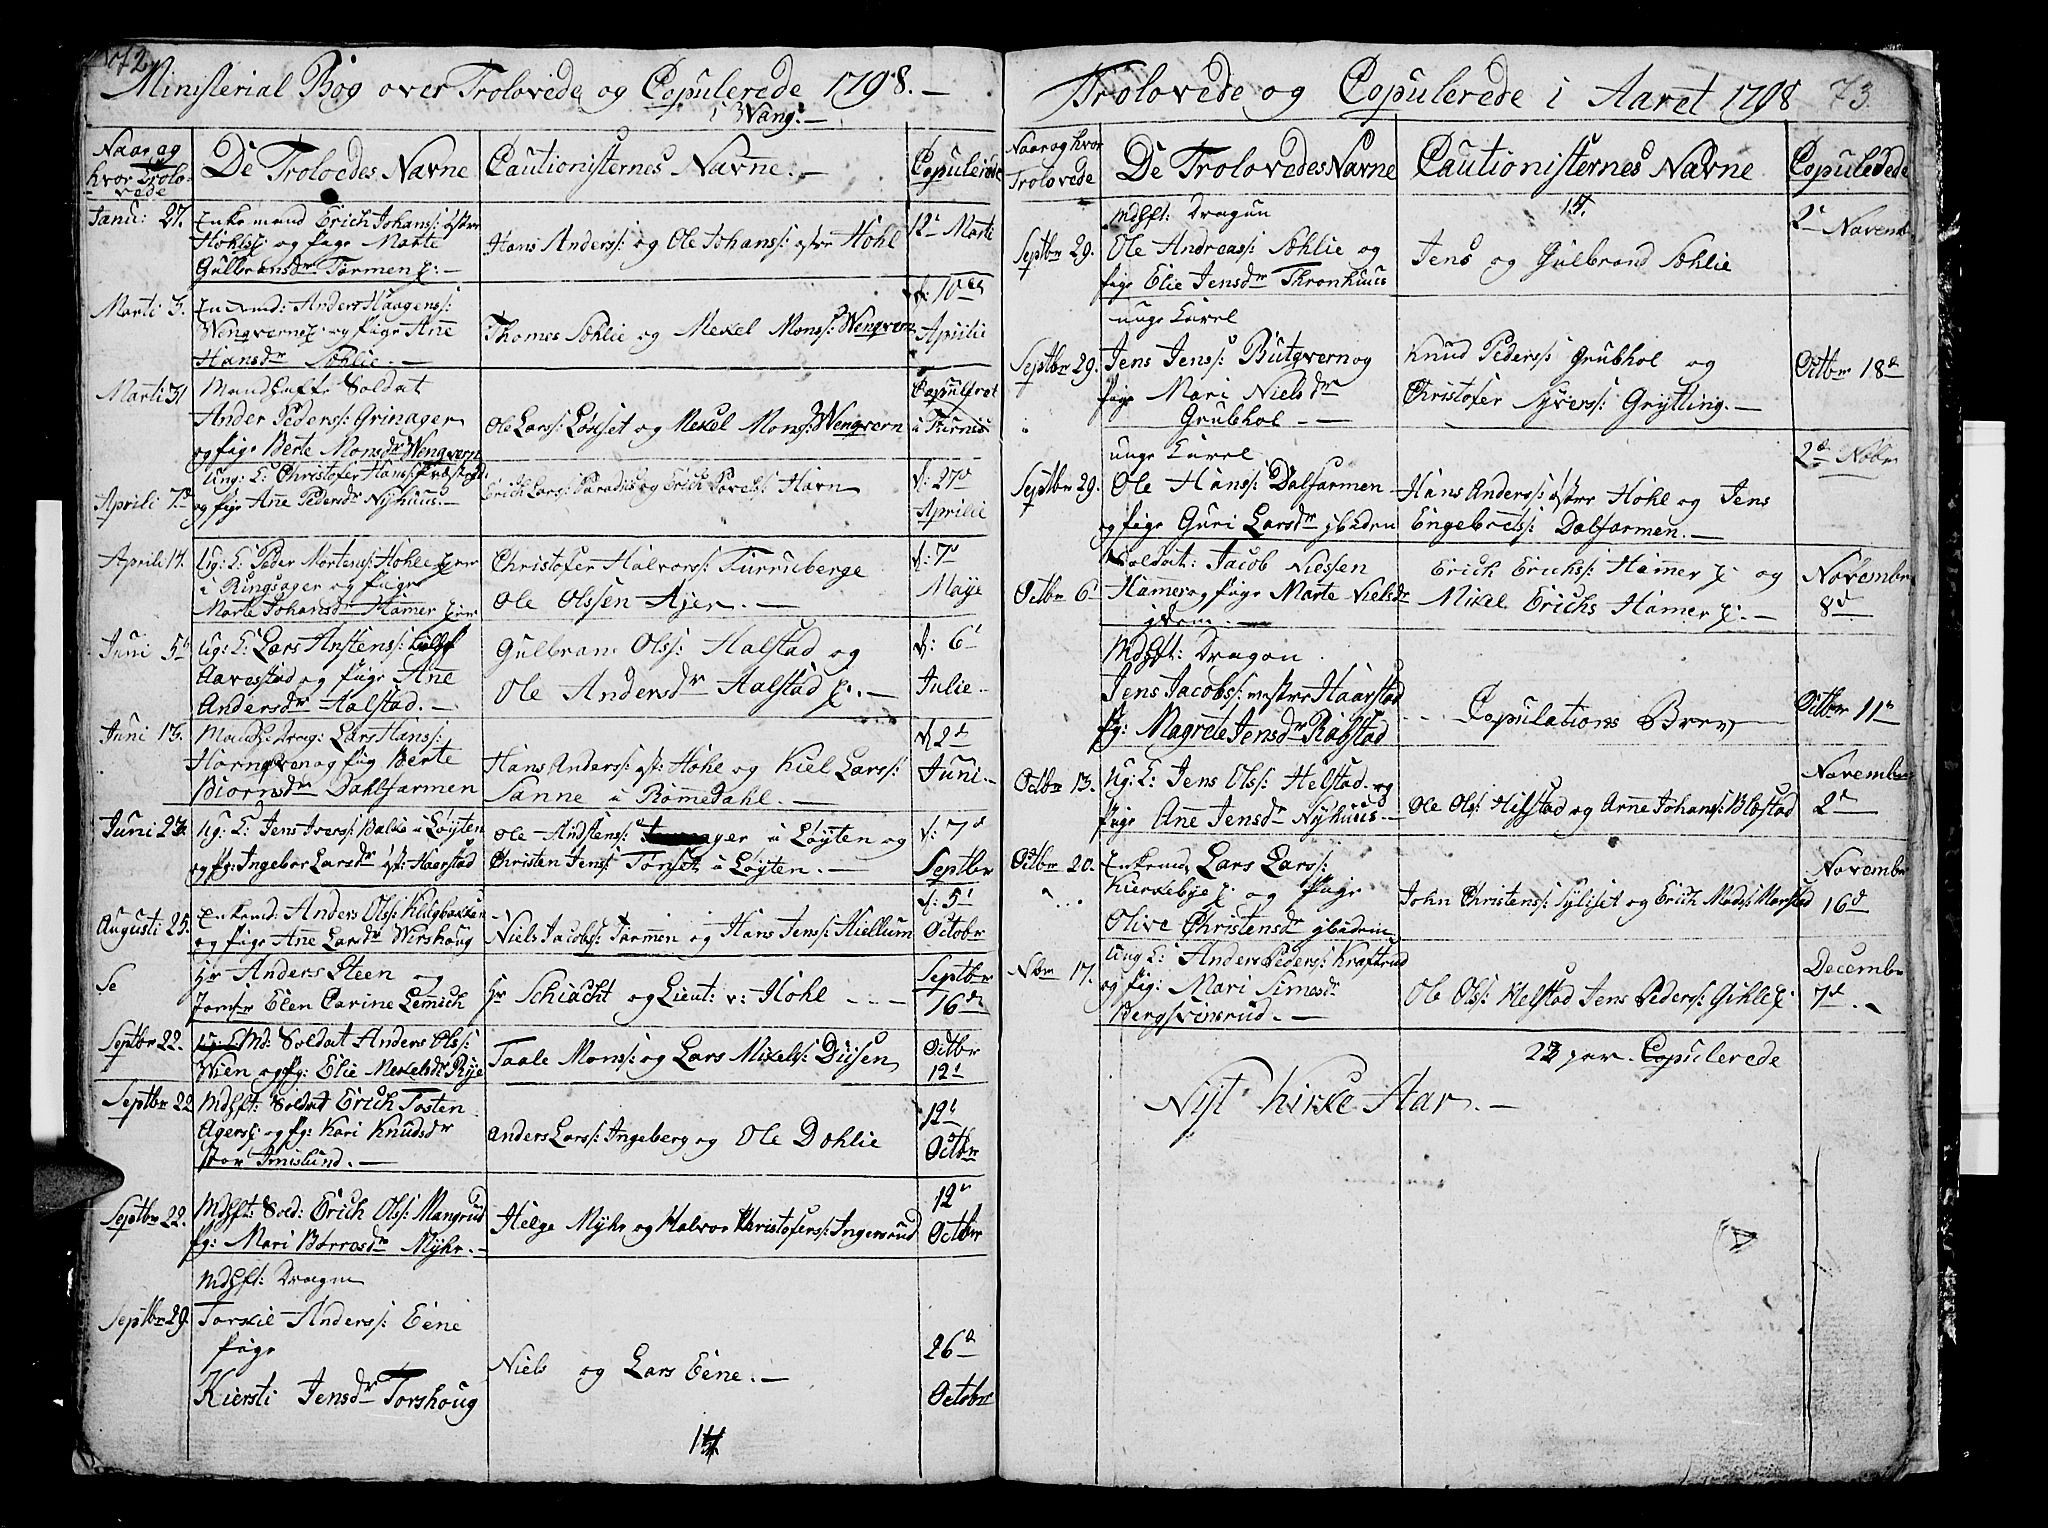 72
Ministerial Bog over Trolovede og Copulerede 1798. –
i Wang: –
Naar og hvor Trolovede
De Trolovedes Navne
Cautionisternes Navne. –
Copulerede
Janu: 27.
Enkemand Erich Johans: østre
Hohls og Pige Marte
Gulbransdr Tormen
Hans Anders: og Ole Johans: østre Hohl
12 Marti
Marti 3.
Enkemd: Anders Haagens:
Wengvern og Pige Ane
Hansdr Sohlie. –
Thomes Sohlie og Mekel Mons: Wengvern
d: 10
Aprilie
Marti 31
Mandhafte Soldat
Ander Peders: Grinager
og Pige Berte Monsdr Wengvern
Ole Lars: Løkset og Mekel Mons: Wengvern
Copuleret
i Furnis
Aprili 7d
Ung: K: Christofer Hans:
og Pige Ane Pedersdr Nyhuus. –
Erich Lars: og Erich Horn
d: 27d
Aprilie
Aprili 14.
Ug: K: Peder Mortens: Hohle
i Ringsager og Pige
Marte Johansdr Hamer
Christofer Halvors: Furruberge
Ole Olssen Ajer. –
d: 7d
Maye
Juni 5
Ug: K: Lars Anstens:
Aarestad og Pige Ane
Andersdr Aalstad. –
Gulbram Ols: Halstad og
Ole Andersdr Aalstad
d: 6
Julie
Juni 13.
Mandh: Drag: Lars Hans:
Horngven og Pig Berte
Biornsdr Dahlfarmen
Hans Anders: øst: Hohl og Kiel Lars:
Sanne i Rommedahl. –
d 2d
Juni. –
Juni 23.
Ug: K: Jens Ivers: Balke i Løyten
og Pg: Ingebor Larsdr øst: Haarstad
Ole Andstens: i Løyten og
Christen Jens: Torset i Løyten. –
d: 7d
Septbr
Augusti 25.
Enkemd: Anders Ols: Klugbakken
og Pige Ane Larsdr Wirshoug
Niels Jacobs: Tormen og Hans Jens: Hiellum
d: 5
Octobr
Se
Hr Anders Steen og
Jomfr Elen Carine Lemich
Hr Schiacht og Lieut: v: Hohl
Septbr
16d
Septbr 22.
Md: Soldat Anders Ols:
Wien og Pg: Elie Mekelsdr Rye
Taale Mons: og Lars Mikels: Dusen
Octbr
12
Septbr 22
Mdhft: Soldat Erich Tosten
Agers og Pg: Kari Knudsdr
stor Imislund. –
Anders Lars: Ingeberg og Ole Dohlie
19
Octbr
Septbr 22.
Mdhft: Sold: Erich Ols: Mangrud
Pg: Mari Borresdr Myhr. –
Helge Myhr og Halvor Christofers: Ingersrud
12
Octbr
Septbr 29.
Mdhft: Dragon
Torkil Anders: Eene
Pige
Kiersti Jensdr Torshoug
Niels og Lars Eene. –
26d
Octobr
14
73.
Trolovede og Copulerede i Aaret 1798
Naar og hvor Trolovede
De Trolovedes Navne
Cautionisternes Navne
Copulerede
14.
Septbr 29.
Mdhft: Dragun
Ole Andreas: Sohlie og
Pige Elie Jensdr Thronhuus
Jens og Gulbrand Sohlie
2 Novemb
Septbr 29.
unge Karel
Jens Jens: Butqvern og
Pige Mari Nielsdr
Grubhol –
Knud Peders: Grubhol og
Christofer Syvers: Grytting. –
Octbr 18d
Septbr 29.
unge Karel
Ole Hans: Dalfarmen
og Pige Guri Larsdr ibidem
Hans Anders: østre Hohl og Jens
Engebrets: Dalfarmen. –
2d Nobr
Octbr 6
Soldat: Jacob Nielsen
Hamer og Pige Marte Nielsdr
idem. –
Erich Erichs: Hamer og
Mikel Erichs Hamer
Novembr
8d
Mdhft: Dragon.
Jens Jacobs: vestre Haarstad
Pg: Magrete Jensdr Rabstad
Copulations Brev
Octbr 11
Octbr 13.
Ug: K: Jens Ols: Helstad og
Pige Ane Jensdr Nyhuus. –
Ole Ols: Helstad og Arne Johans: Blæstad
Novembr
2d
Octbr 20.
Enkemd Lars Lars:
Kirkebye og Pige
Olive Christensdr ibidem
John Christens: Syliset og Erich Mads: Morstad
Novembr
16d
Nbr 17.
Ung K: Anders Peders: Kraftrud
og Pig: Mari Simesdr
Bergsvinsrud. –
Ole Ols: Helstad Jens Peders: Gihle
Decembr
7d
23 par Copulerede
Nyt Kirke Aar. –